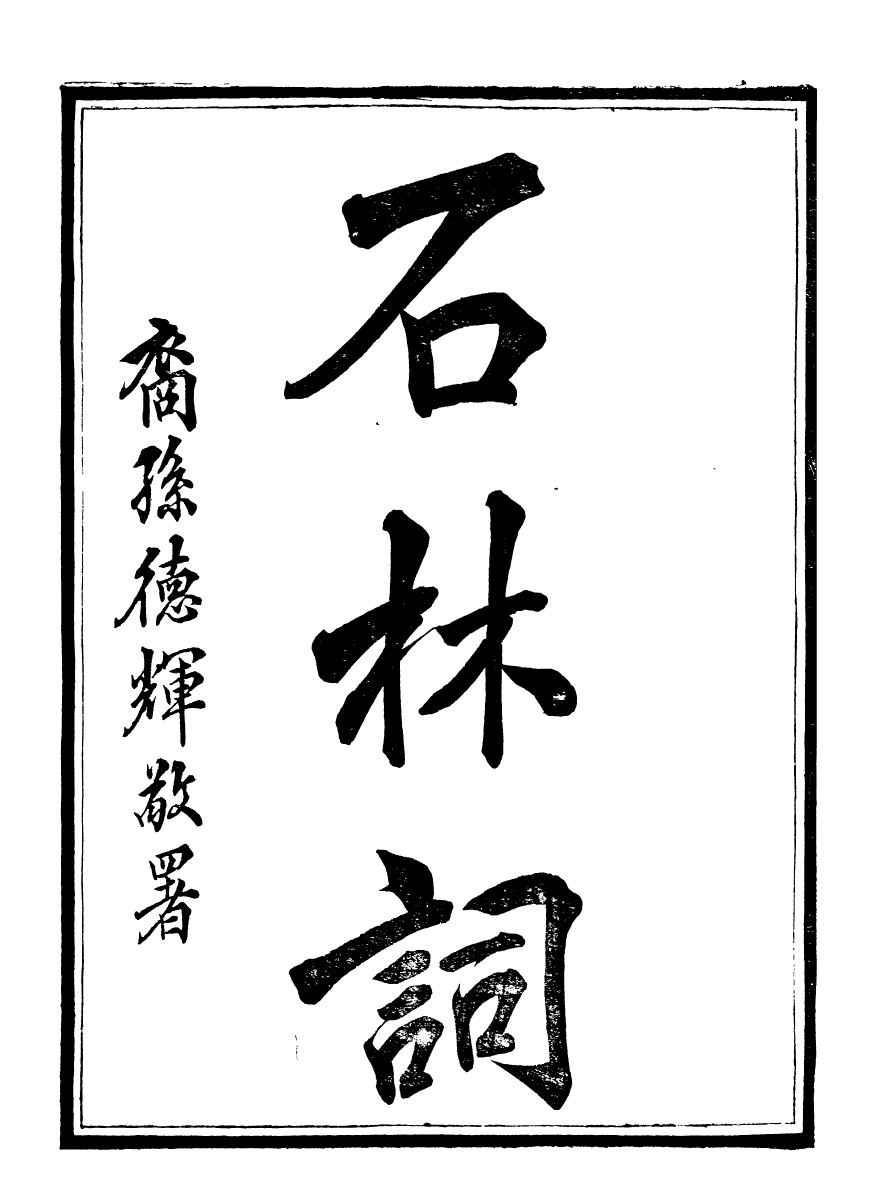 石林詞
裔孫德輝敬署